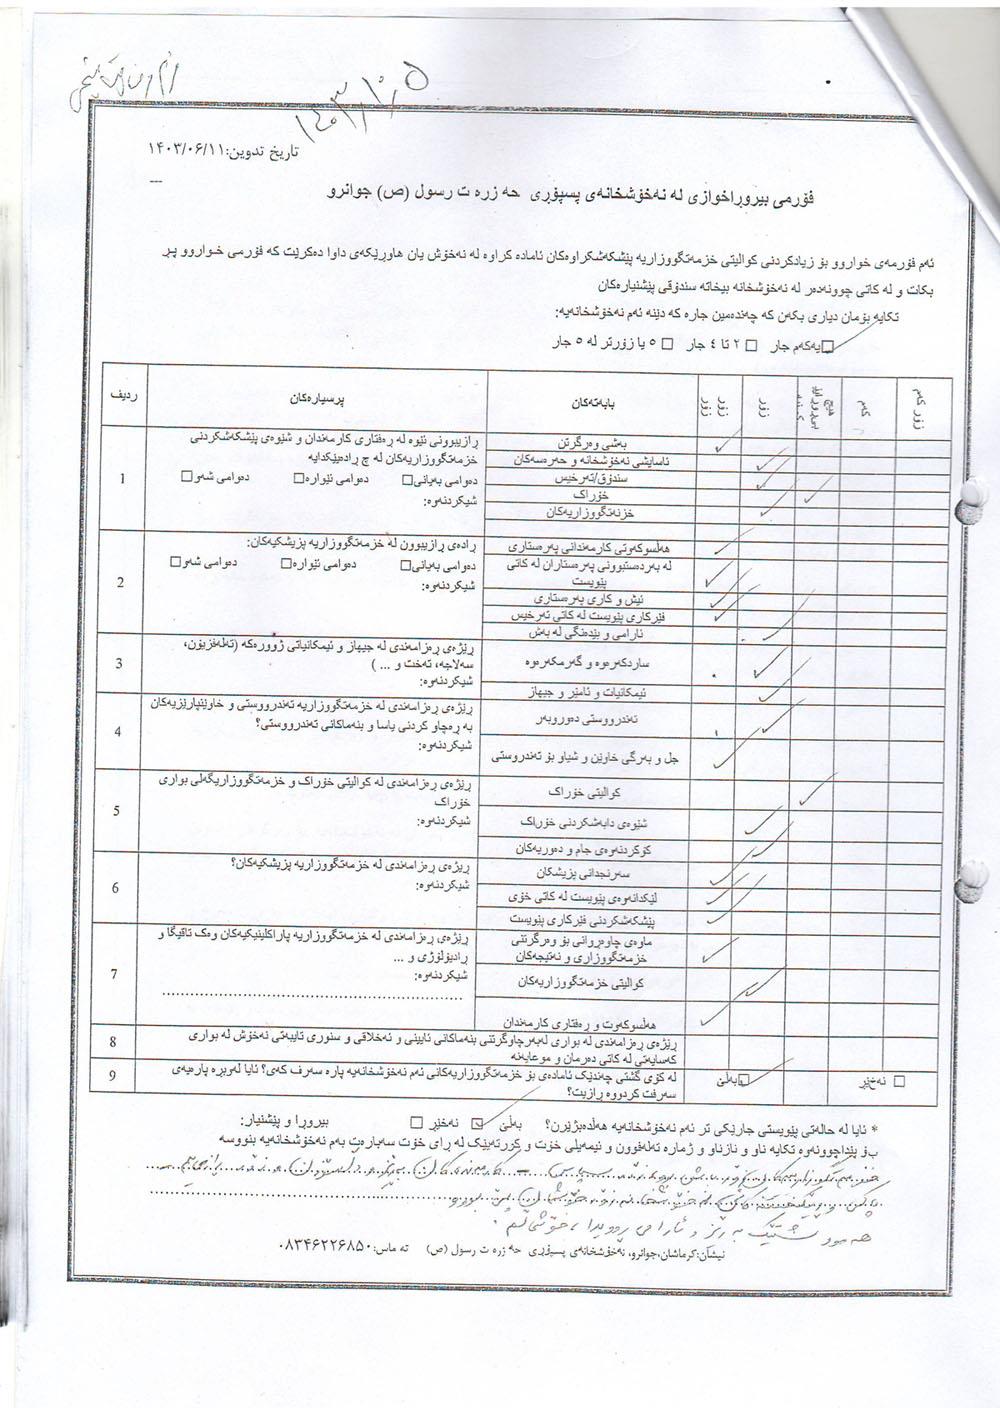 ۱۴۰۳/۱۰/۵
تاریخ تدوین:۱۴۰۳/۰۶/۱۱
---
فۆرمی بیروڕاخوازی له نەخۆشخانەی پسپۆری حه زره ت رسول (ص) جوانرو
ئەم فۆرمەی خواروو بۆ زیادکردنی کوالیتی خزمەتگووزاریە پێشکەشکراوەکان ئامادە کراوە لە نەخۆش یان هاوڕێکەی داوا دەکرێت کە فۆرمی خواروو پڕ
بکات و لە کاتی چوونەدەر لە نەخۆشخانە بیخاتە سندۆقی پێشنیارەکان
تکایە بۆمان دیاری بکەن کە چەندەمین جارە کە دێنە ئەم نەخۆشخانەیە:
☐یەکەم جار ☐ ۲ تا ٤ جار ☐ ٥ یا زۆرتر لە ٥ جار
ردیف پرسیارەکان بابەتەکان زۆر زۆر زۆر هیچ کەم زۆر کەم
1 ڕازیبوونی ئێوە لە ڕەفتاری کارمەندان و شێوەی پێشکەشکردنی
خزمەتگووزاریەکان لە چ ڕادەیێکدایە
دەوامی بەیانی☐ دەوامی ئێوارە☐ دەوامی شەو☐
شیکردنەوە:
بەشی وەرگرتن
ئاسایشی نەخۆشخانە و حەرەسەکان
سندۆق/تەرخیس
خۆراک
خزنەتگووزاریەکان
2 ڕادەی ڕازیبوون لە خزمەتگووزاریە پزیشکیەکان:
دەوامی بەیانی☐ دەوامی ئێوارە☐ دەوامی شەو☐
شیکردنەوە:
هەڵسوکەوتی کارمەندانی پەرەستاری
لە بەردەستبوونی پەرەستاران لە کاتی
پێویست
ئیش و کاری پەرەستاری
فێرکاری پێویست لە کاتی تەرخیس
ئارامی و بێدەنگی لە بەش
3 ڕێژەی ڕەزامەندی لە جیهاز و ئیمکانیاتی ژوورەکە (تەلەفزیۆن،
سەلاجە، تەخت و ... )
شیکردنەوە:
ساردکەرەوە و گەرمکەرەوە
ئیمکانیات و ئامێر و جیهاز
4 ڕێژەی ڕەزامەندی لە خزمەتگووزاریە تەندرووستی و خاوێنپارێزیەکان
بە ڕەچاو کردنی یاسا و بنەماکانی تەندرووستی؟
شیکردنەوە:
تەندرووستی دەوروبەر
جل و بەرگی خاوێن و شیاو بۆ تەندروستی
5 ڕێژەی ڕەزامەندی لە کوالیتی خۆراک و خزمەتگووزاریگەلی بواری
خۆراک
شیکردنەوە:
کوالیتی خۆراک
شێوەی دابەشکردنی خۆراک
کۆکردنەوەی جام و دەوریەکان
6 ڕیژەی ڕەزامەندی لە خزمەتگووزاریە پزیشکیەکان؟
شیکردنەوە:
سەرنجدانی پزیشکان
لێکدانەوەی پێویست لە کاتی خۆی
پێشکەشکردنی فێرکاری پێویست
7 ڕێژەی ڕەزامەندی لە خزمەتگووزاریە پاراکلینیکیەکان وەک تاقیگا و
ڕادیۆلۆژی و ...
شیکردنەوە:
ماوەی چاوەڕوانی بۆ وەرگرتنی
خزمەتگووزاری و نەتیجەکان
کوالیتی خزمەتگووزاریەکان
هەڵسوکەوت و ڕەفتاری کارمەندان
8 ڕێژەی ڕەزامەندی لە بواری لەبەرچاوگرتنی بنەماکانی ئایینی و ئەخلاقی و سنوری تایبەتی نەخۆش لە بواری
کەسایەتی لە کاتی دەرمان و موعایەنە
9 لە کۆی گشتی چەندێک ئامادەی بۆ خزمەتگووزاریەکانی ئەم نەخۆشخانەیە پارە سەرف کەی؟ ئایا لەوبڕە پارەیەی
سەرفت کردووە ڕازیت؟
☐بەڵێ ☐ نەخێر
* ئایا لە حالەتی پێویستی جارێکی تر ئەم نەخۆشخانەیە هەڵدەبژێرن؟ بەڵێ ☑ نەخێڕ ☐ بیروڕا و پێشنیار:
بۆ پێداچوونەوە تکایە ناو و نازناو و ژمارە تەلەفوون و ئیمەیلی خۆت و کورتەیێک لە ڕای خۆت سەبارەت بەم نەخۆشخانەیە بنووسە
هەموو شتێک بە ڕێز و ئارامی
نیشان:کرماشان،جوانرو، نەخۆشخانەی پسپۆری حه زره ت رسول (ص) ته ماس:۰۸۳۴۶۲۲۶۸۵۰